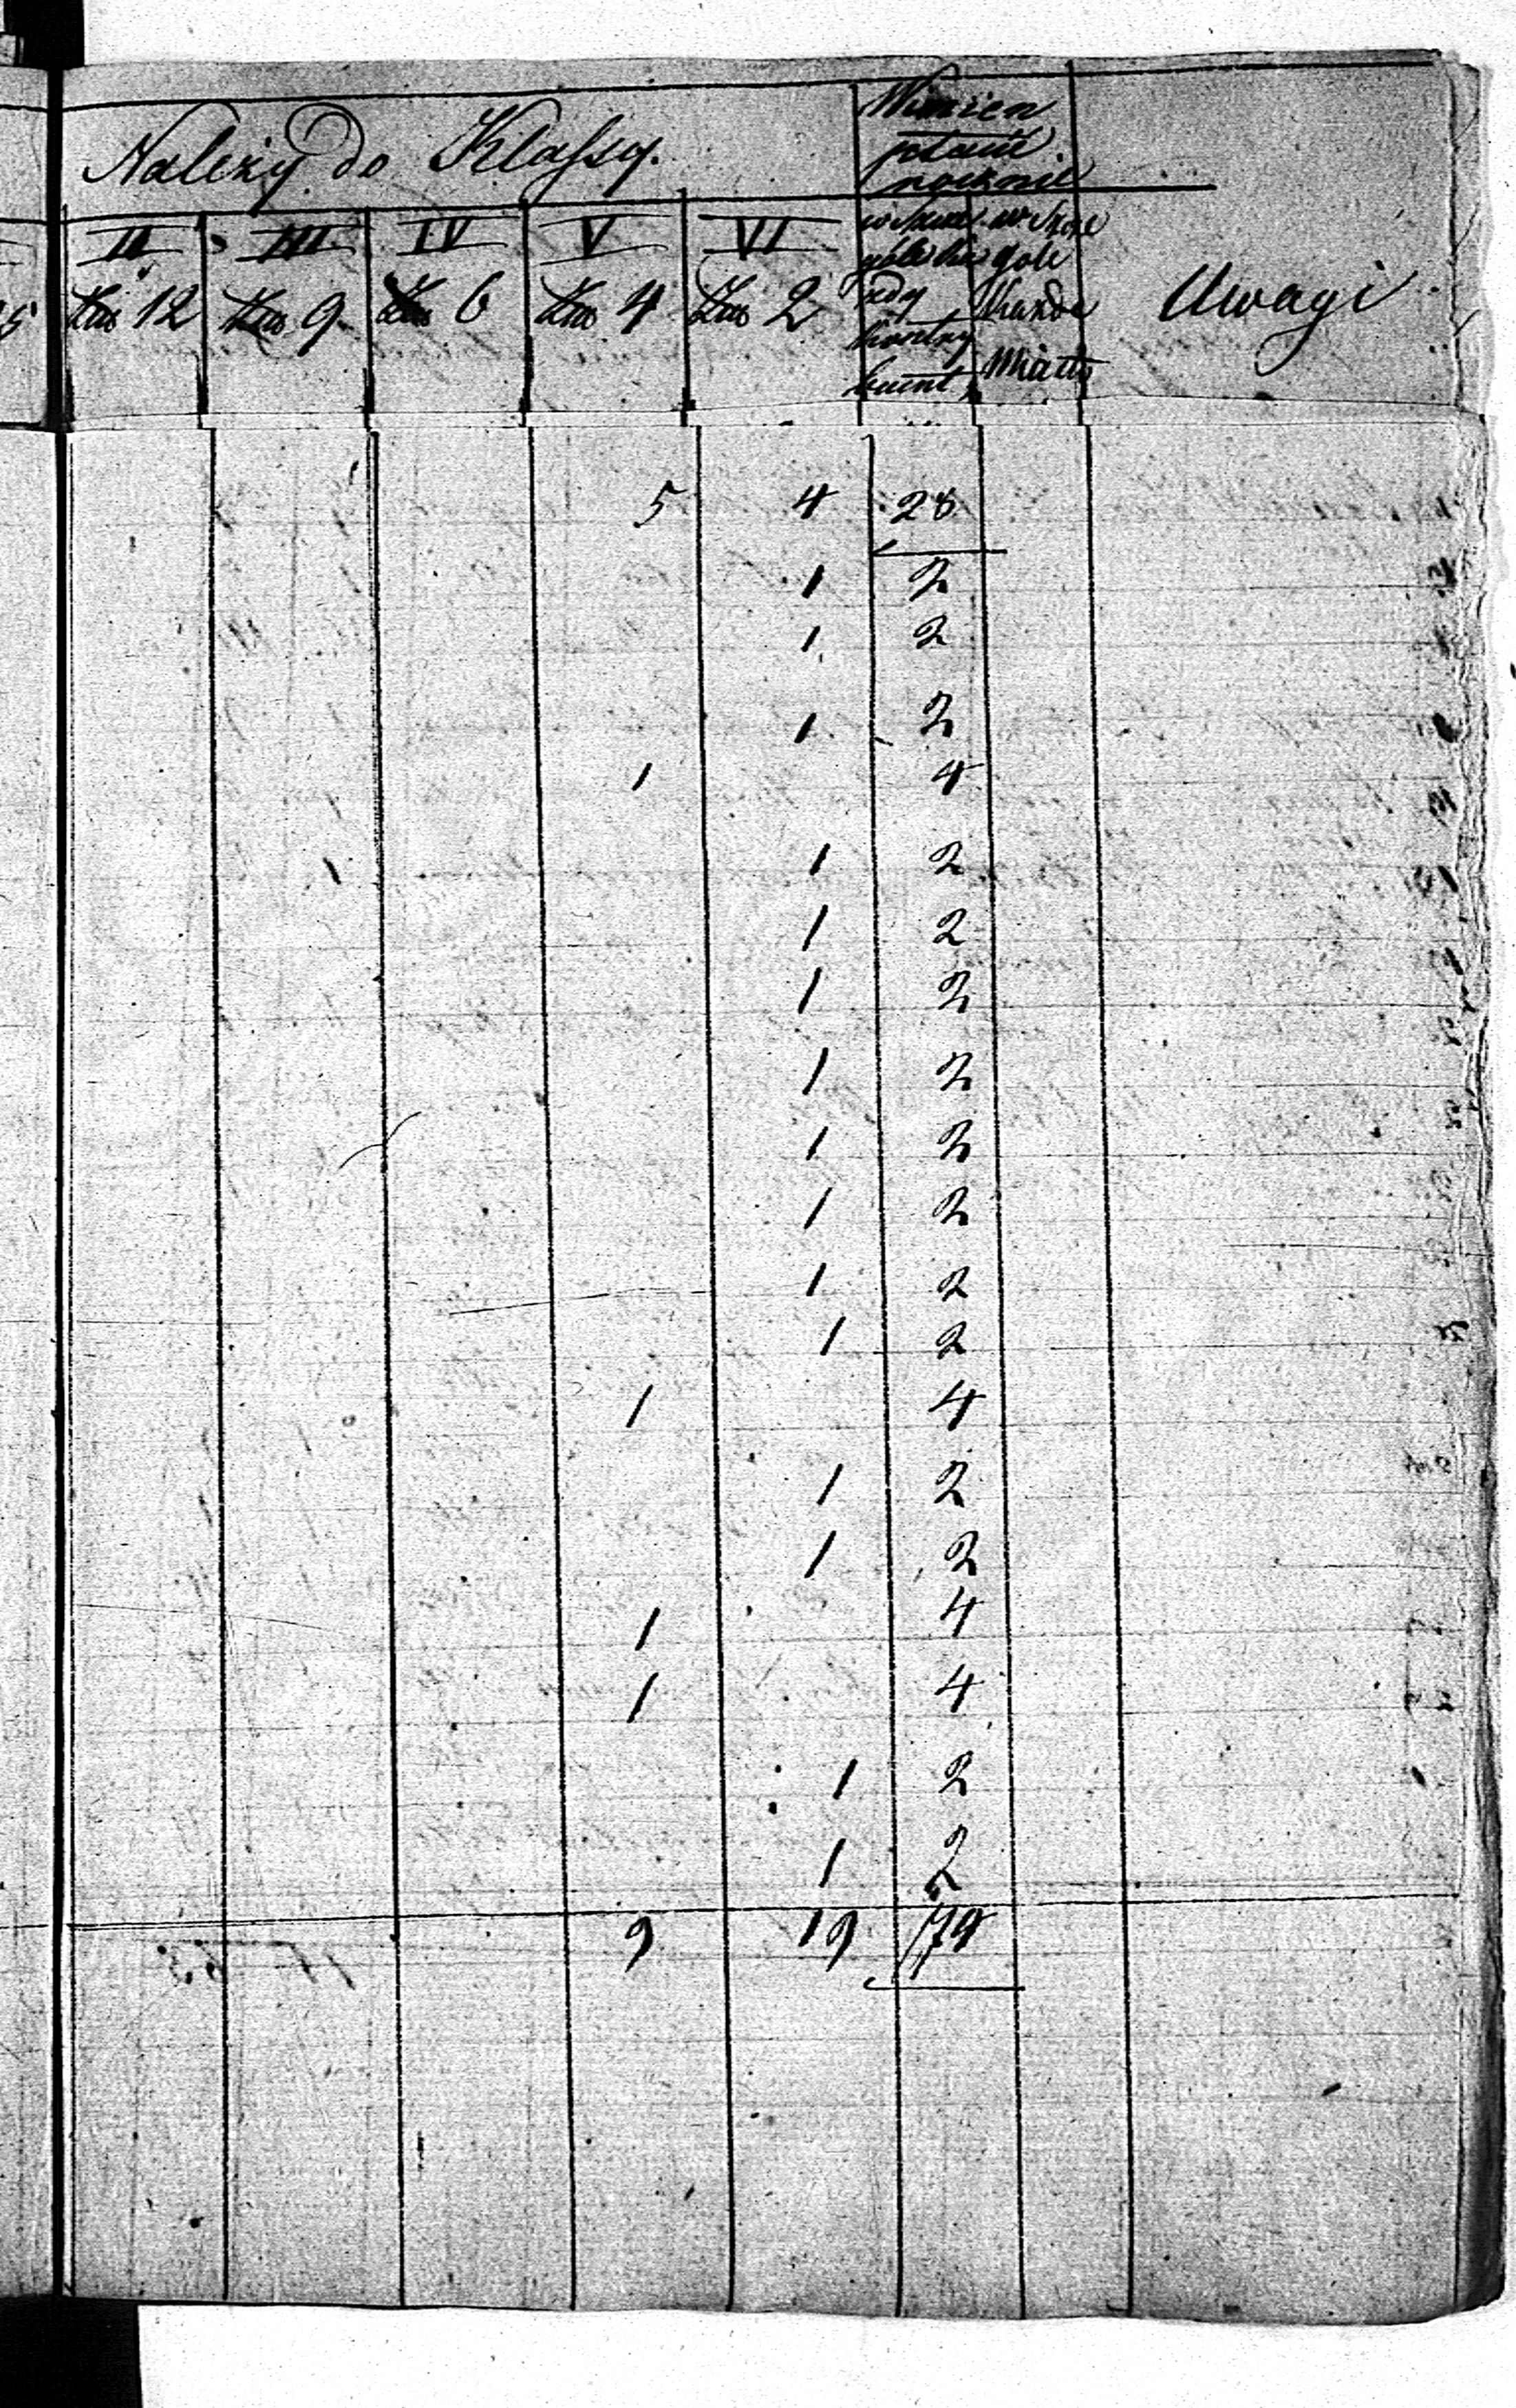 Należy do Klassy.
II III IV V VI
12 9 6 4 2
Uwagi
Miasto
5 4 28
1 2
1 2
1 2
1 4
1 2
1 2
1 2
1 2
1 2
1 2
1 2
1 2
1 4
1 2
1 2
1 4
1 4
1 2
1 2
9 19 74